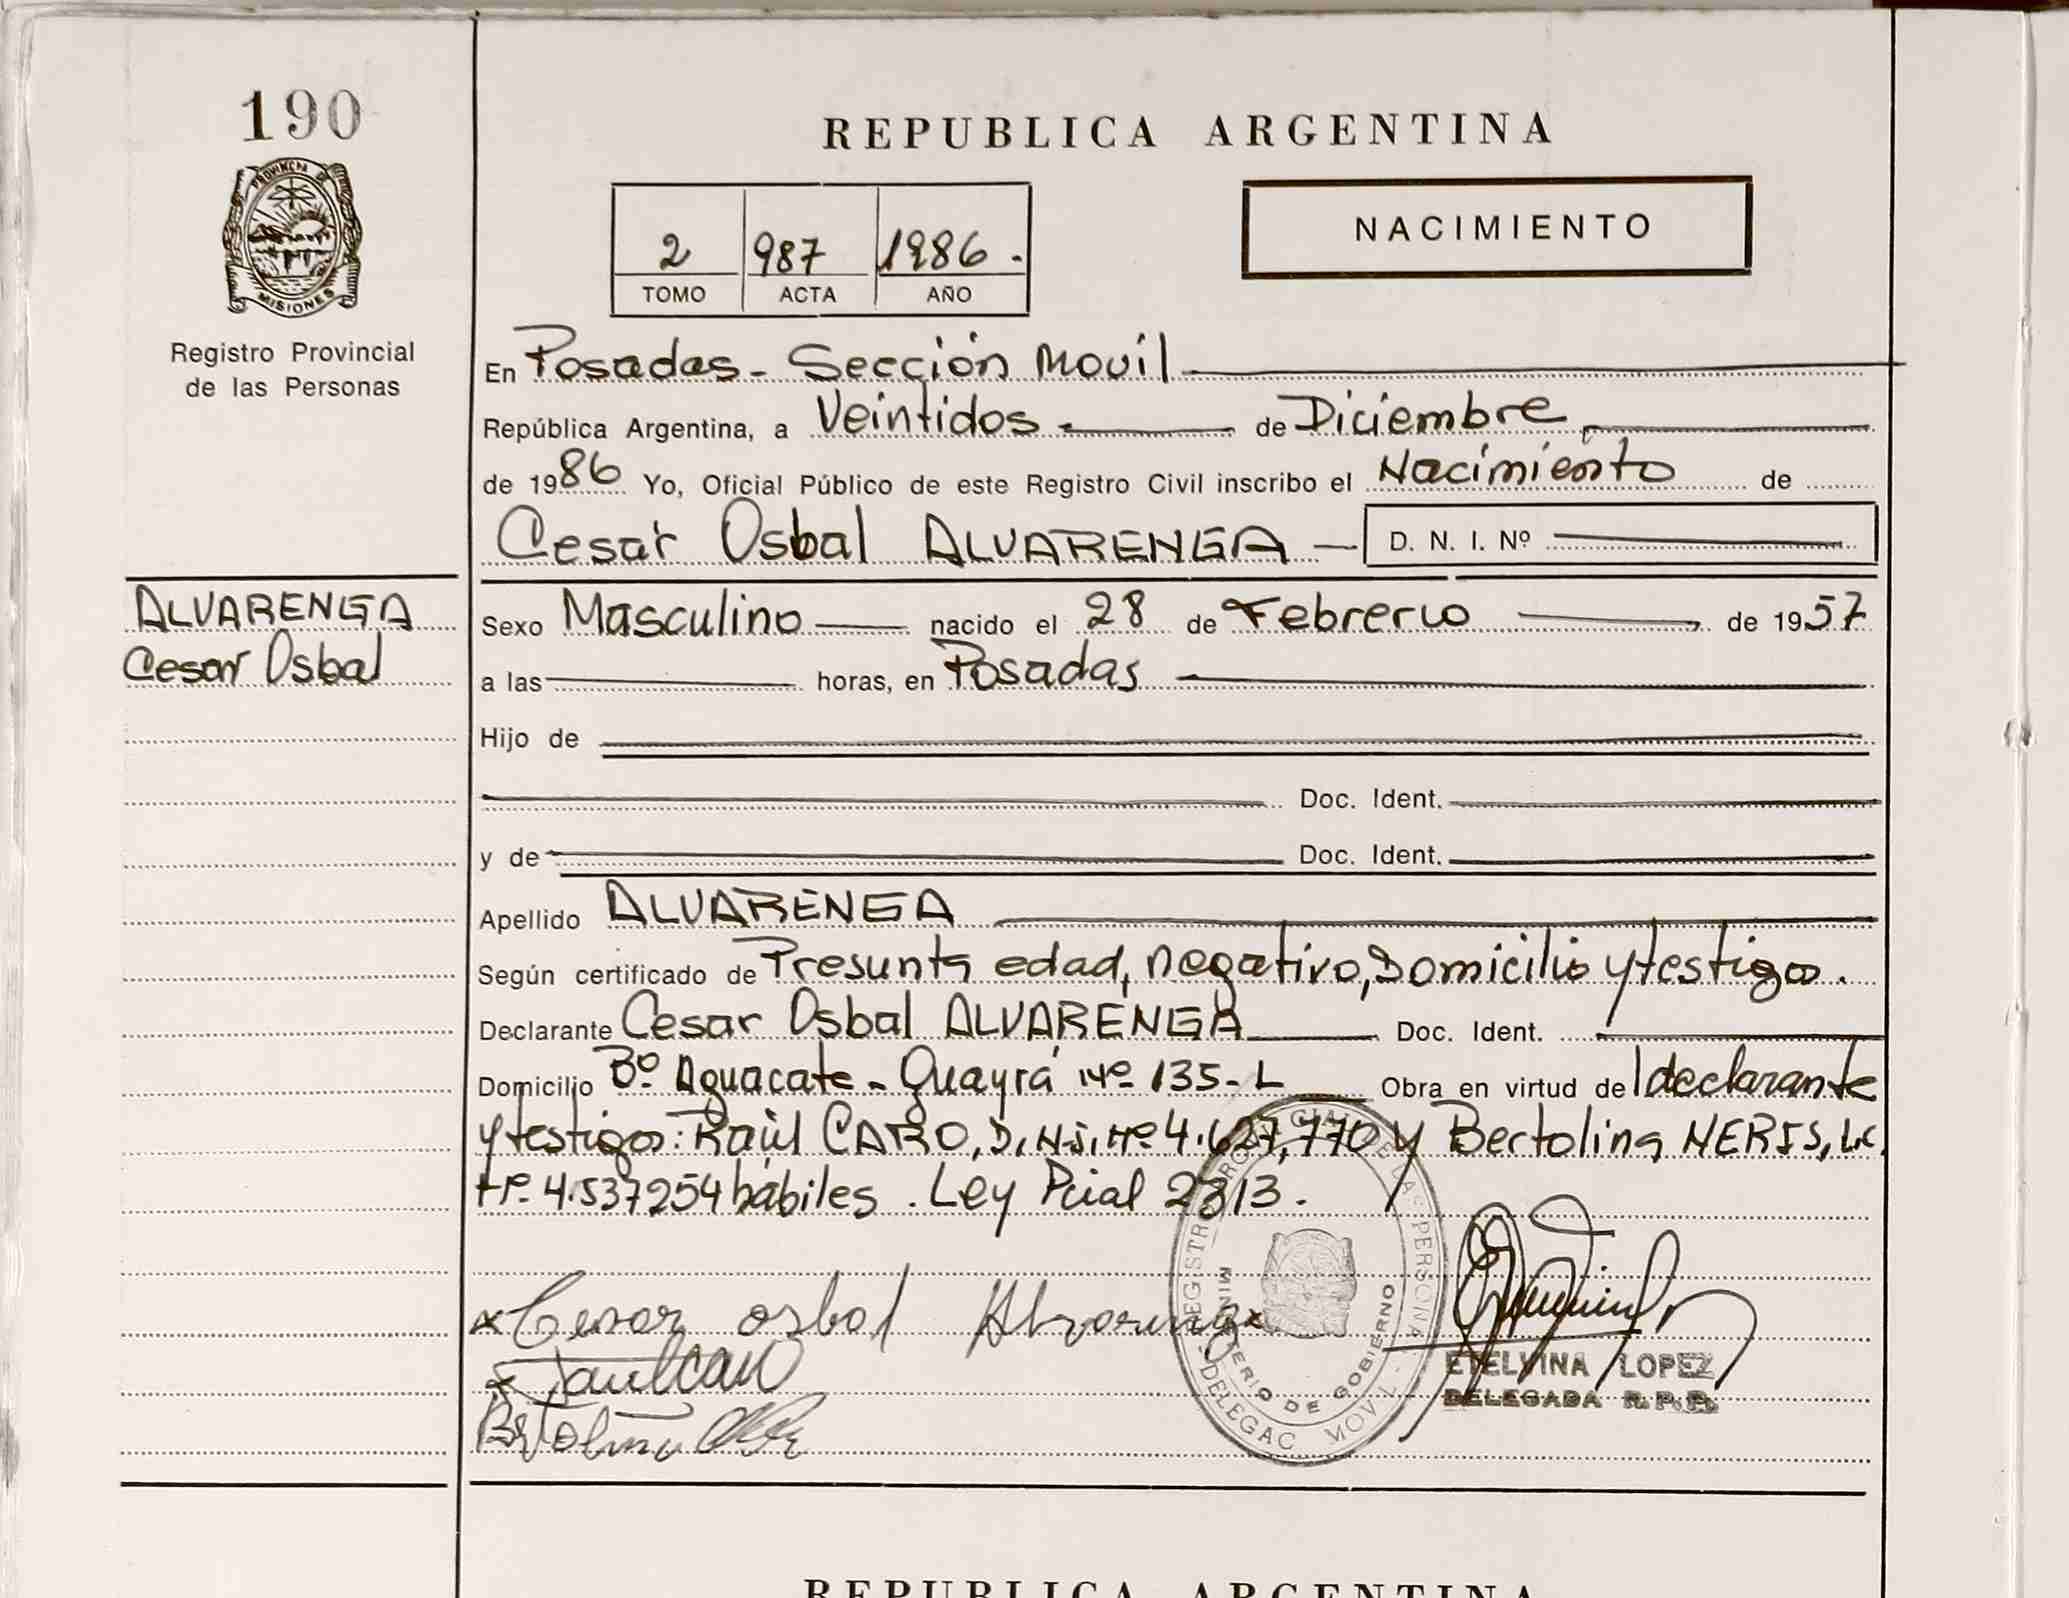 190
PROVINCIA DE
MISIONES
Registro Provincial
de las Personas
REPUBLICA ARGENTINA
2 987 1986.
TOMO ACTA AÑO
NACIMIENTO
En Posadas - Sección Movil
República Argentina, a Veintidos de Diciembre
de 1986 Yo, Oficial Público de este Registro Civil inscribo el Nacimiento de
Cesar Osbal ALVARENGA — D. N. I. Nº
ALVARENGA
Cesar Osbal
Sexo Masculino nacido el 28 de Febrero de 1957
a las horas, en Posadas
Hijo de
Doc. Ident.
y de Doc. Ident.
Apellido ALVARENGA
Según certificado de Presunta edad, negativo, Domicilio y testigos.
Declarante Cesar Osbal ALVARENGA Doc. Ident.
Domicilio Bº Aguacate - Quayrá Nº 135 - L Obra en virtud de l declarante
y testigos: Raúl CARO, D.N.I. Nº 4.627,770 y Bertolina NERIS, L.C.
Nº 4.537254 hábiles. Ley Pcial 2313.
x Cesar osbal Alvarenga x
REGISTRO PROVINCIAL DE LAS PERSONAS
MINISTERIO DE GOBIERNO
DELEGAC MOVIL
ETELVINA LOPEZ
DELEGADA R.P.P.
REPUBLICA ARGENTINA